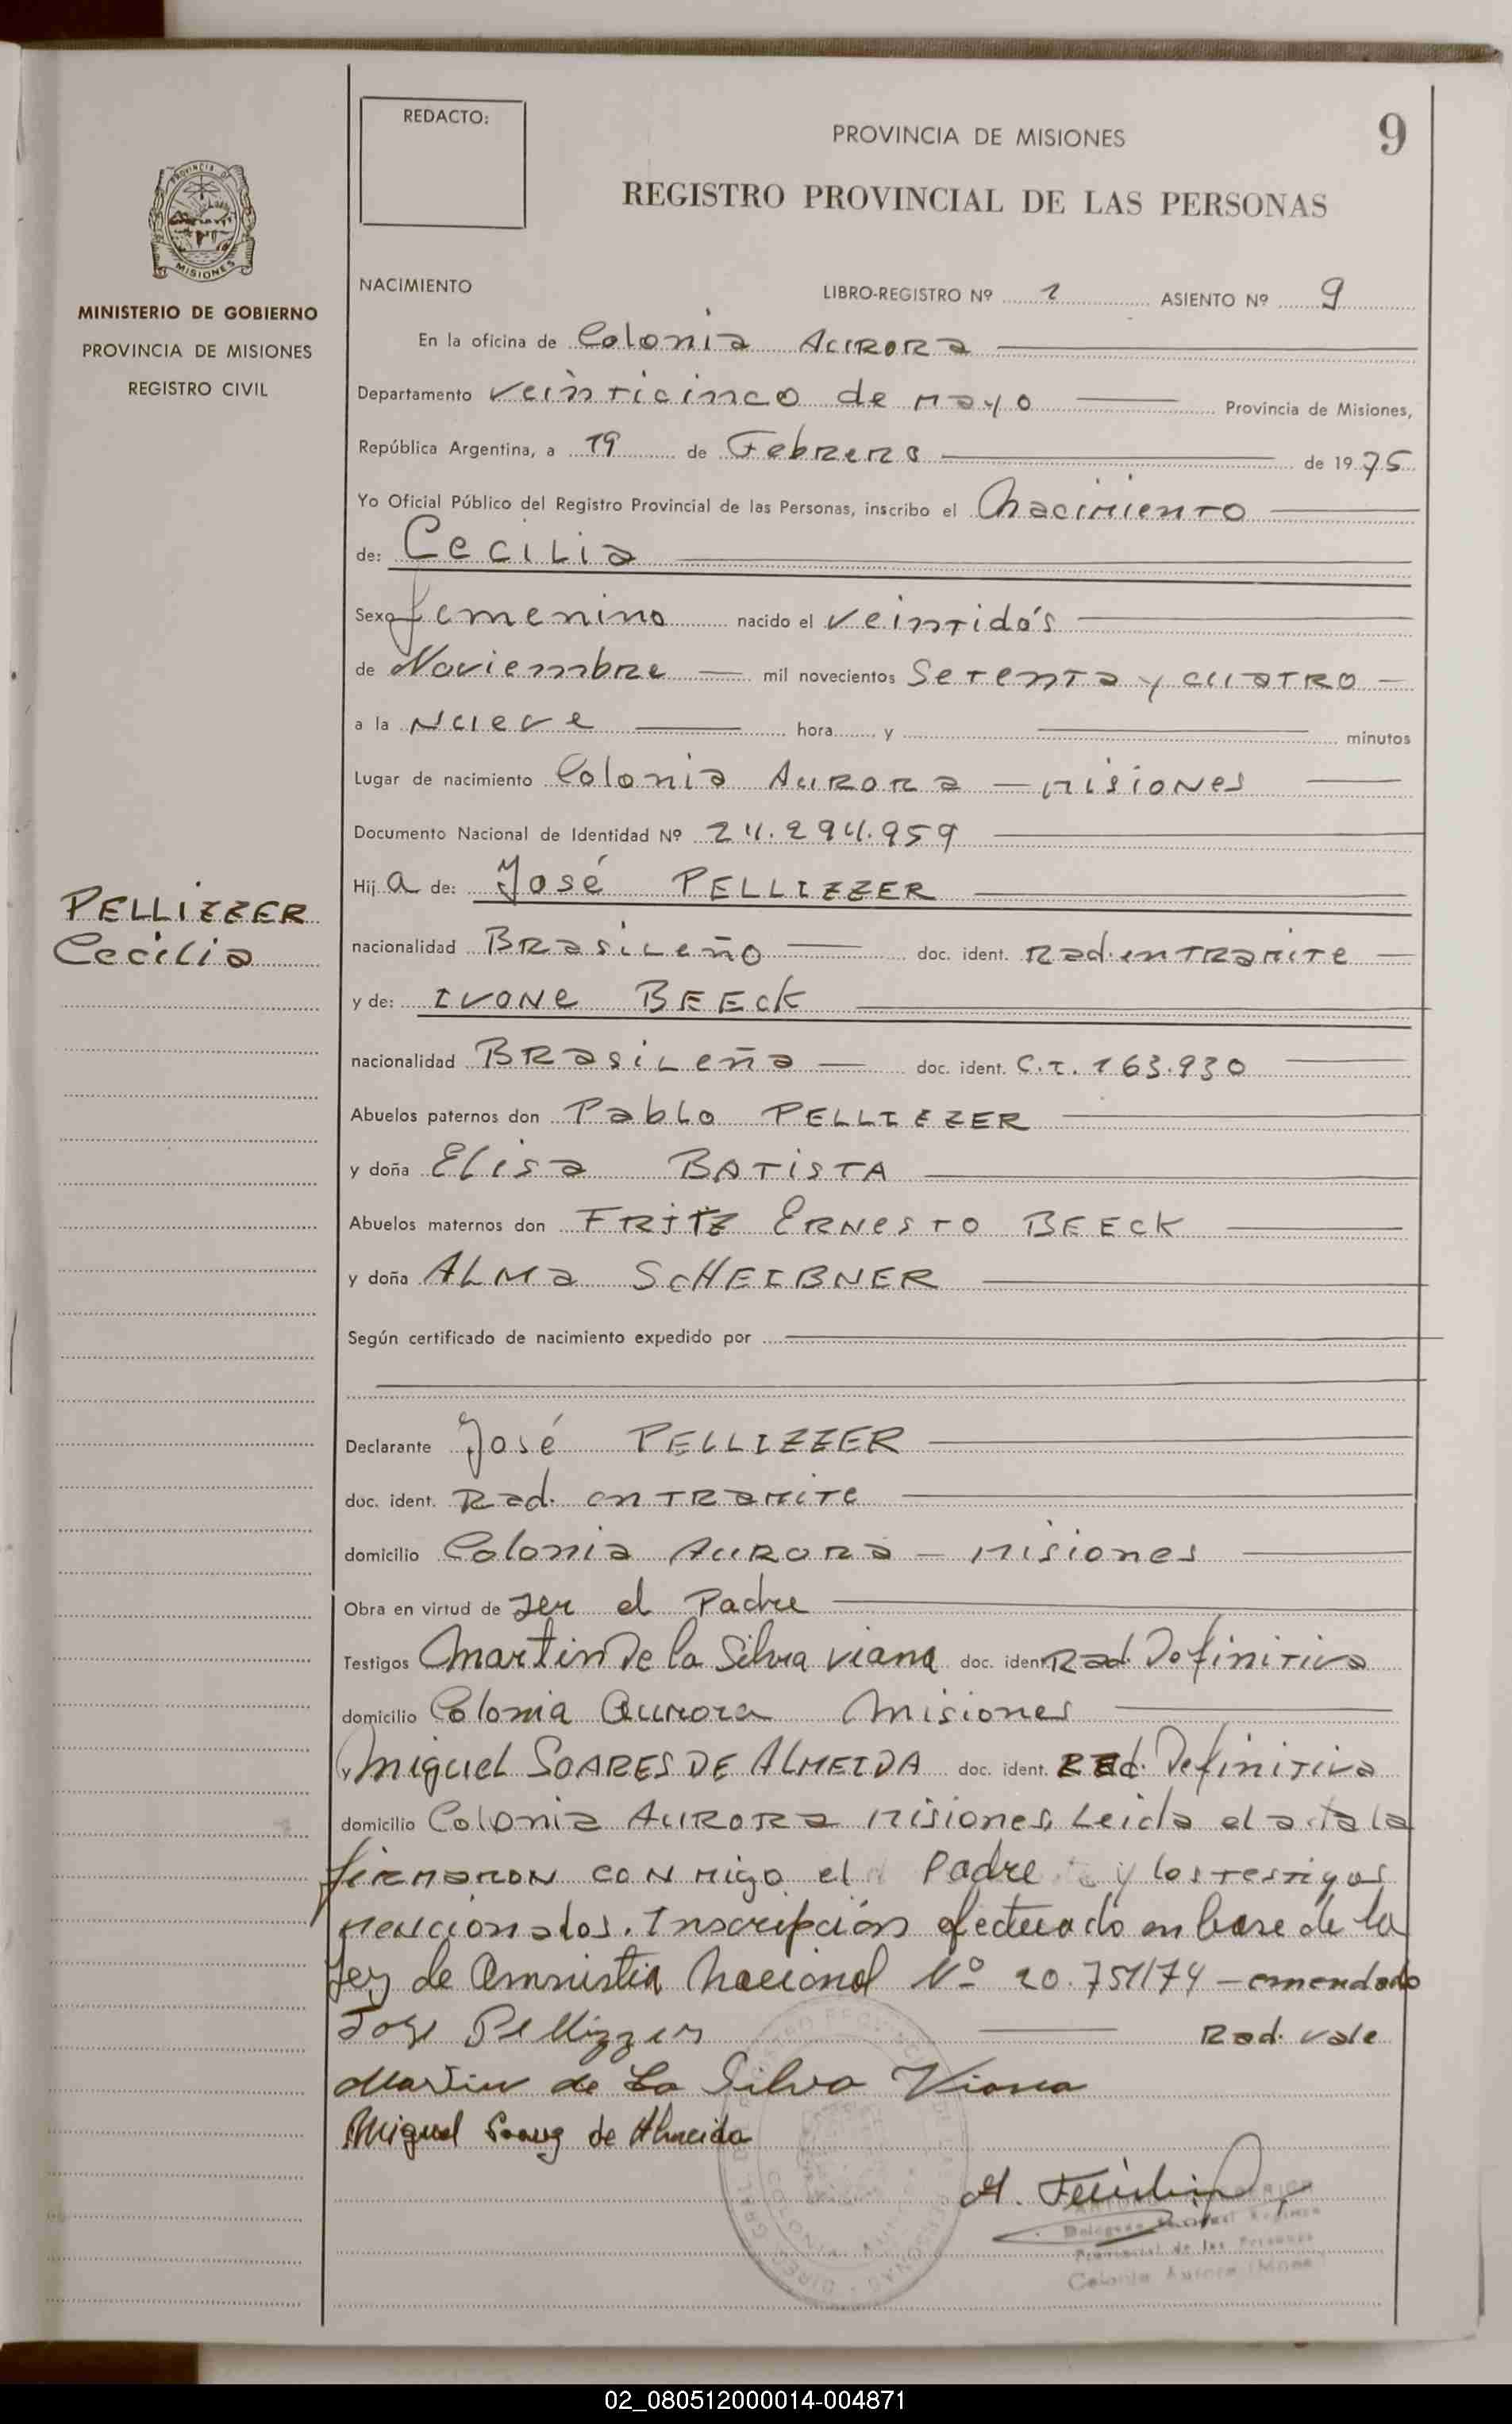 REDACTO:
PROVINCIA DE MISIONES
9
REGISTRO PROVINCIAL DE LAS PERSONAS
PROVINCIA DE
MISIONES
MINISTERIO DE GOBIERNO
PROVINCIA DE MISIONES
REGISTRO CIVIL
NACIMIENTO LIBRO-REGISTRO Nº 1 ASIENTO Nº 9
En la oficina de Colonia Aurora
Departamento veinticinco de mayo Provincia de Misiones,
República Argentina, a 19 de Febrero de 1975
Yo Oficial Público del Registro Provincial de las Personas, inscribo el Nacimiento
de: Cecilia
Sexo femenino nacido el veintidós
de Noviembre mil novecientos Setenta y cuatro
a la Nueve hora y minutos
Lugar de nacimiento Colonia Aurora - misiones
Documento Nacional de Identidad Nº 24.294.959
Hija de: José PELLIZZER
PELLIZZER
Cecilia
nacionalidad Brasileño doc. ident. Rad. en tramite
y de: Ivone BEECK
nacionalidad Brasileña doc. ident. C.I. 163.930
Abuelos paternos don Pablo PELLIZZER
y doña Elisa BATISTA
Abuelos maternos don FRITZ Ernesto BEECK
y doña ALMA SCHEIBNER
Según certificado de nacimiento expedido por
Declarante José PELLIZZER
doc. ident. Rad. en tramite
domicilio Colonia Aurora - misiones
Obra en virtud de ser el Padre
Testigos Martin De la Silva viana doc. ident. Rad. Definitiva
domicilio Colonia Aurora Misiones
y Miguel SOARES DE ALMEIDA doc. ident. Rad. Definitiva
domicilio Colonia Aurora misiones, Leida el acta la
firmaron con migo el Padre y los testigos
mencionados. Inscripción efectuado en base de la
Ley de Amnistia Nacional Nº 20.751/74 - emendado
Jose Pellizzer Rad. vale
Martin de La Silva Viana
Miguel Soares de Almeida
Provincial de las Personas
Colonia Aurora
02_080512000014-004871